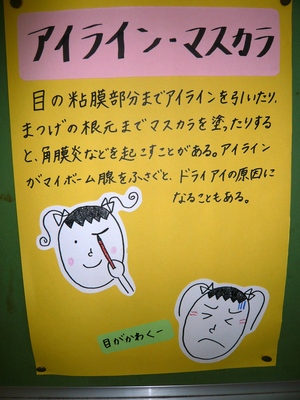 アイライン・マスカラ
目の粘膜部分までアイラインを引いたり、
まつげの根元までマスカラを塗ったりする
と、角膜炎などを起こすことがある。アイライン
がマイボーム腺をふさぐと、ドライアイの原因に
なることもある。
目がかわくー